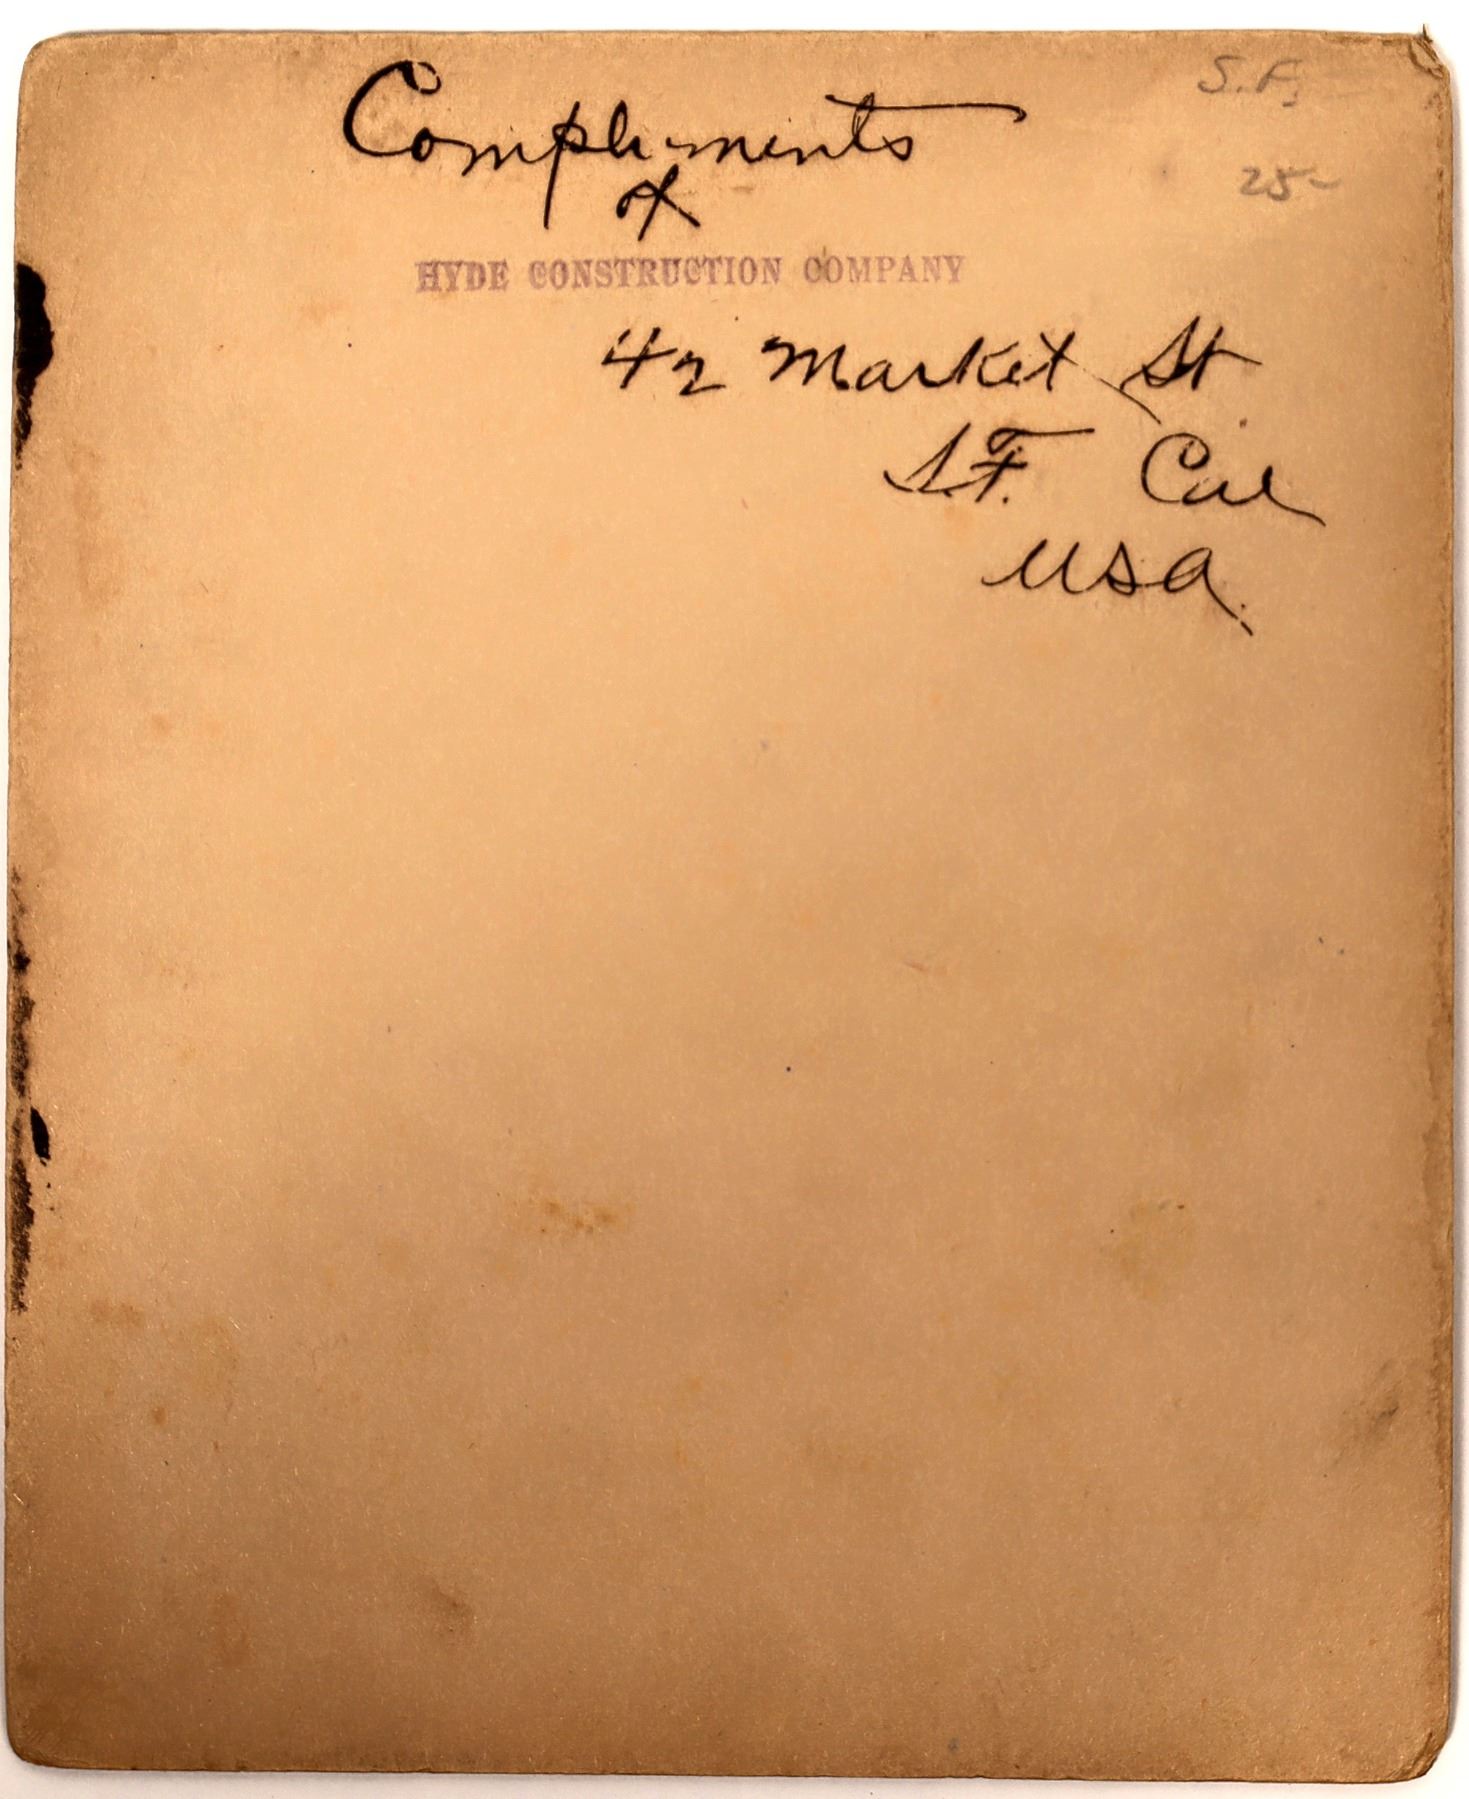 S.F.
25-
Compliments
of
HYDE CONSTRUCTION COMPANY
42 Market St
S.F. Cal
USA.